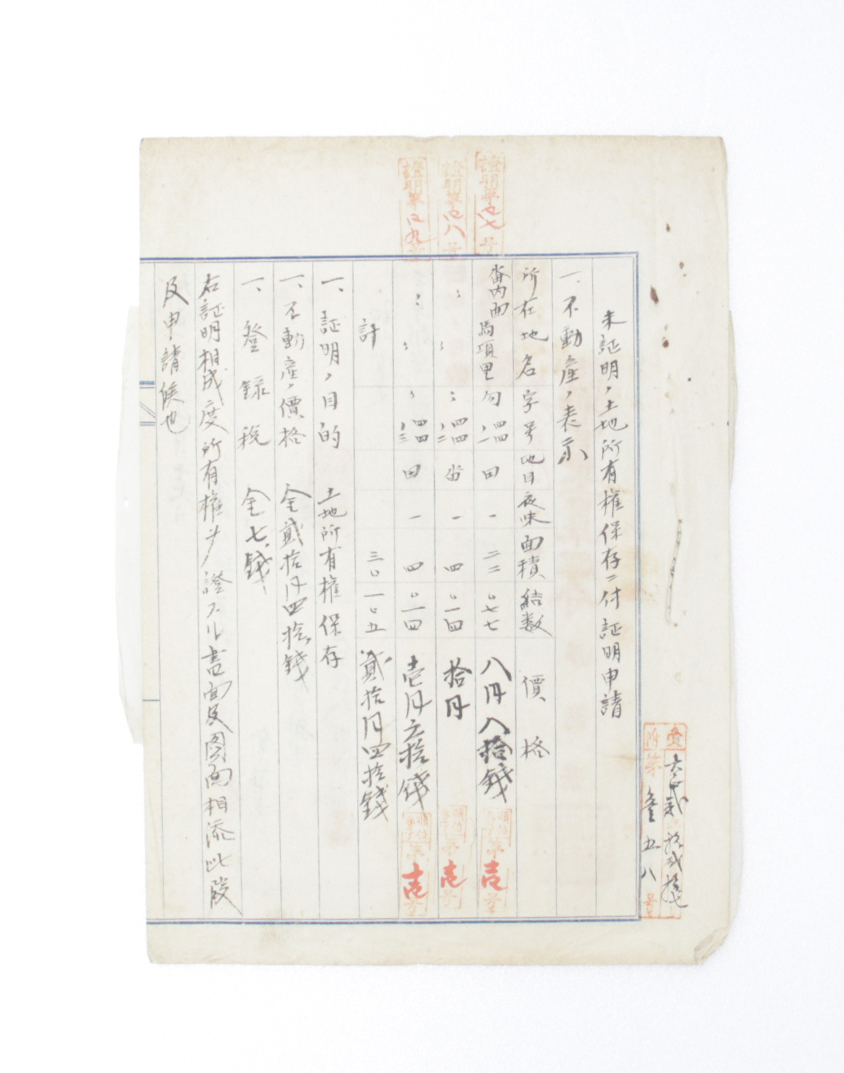 未証明ノ土地所有権保存ニ付証明申請
一、不動産ノ表示
所在地名 字号 地目 夜味 面積 結数 價格
畓内面馬項里 四四 田 一 二二 〇七七 八円八拾錢
〃 〃 〃 四四 畓 一 四 〇一四 拾円
〃 〃 〃 四四 田 一 四 〇一四 壱円六拾錢
計 三〇 一〇五 貳拾円四拾錢
一、証明ノ目的 土地所有権保存
一、不動産ノ價格 金貳拾円四拾錢
一、登録税 金七錢
右証明相成度所有権ヲ證スル書面及図面相添此段
及申請候也
證明第四七号
證明第四八号
證明第四九号
第壱号
第壱号
第壱号